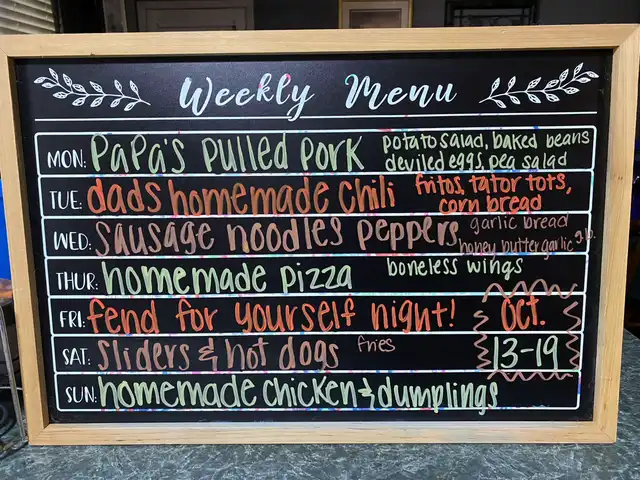 Weekly Menu
MON: PaPa's pulled pork
potato salad, baked beans
deviled eggs, pea salad
TUE: dads homemade chili
fritos, tator tots,
corn bread
WED: sausage noodles peppers
garlic bread
honey butter garlic
THUR: homemade pizza
boneless wings
FRI: fend for yourself night!
SAT: sliders & hot dogs
fries
SUN: homemade chicken & dumplings
OCT.
13-19